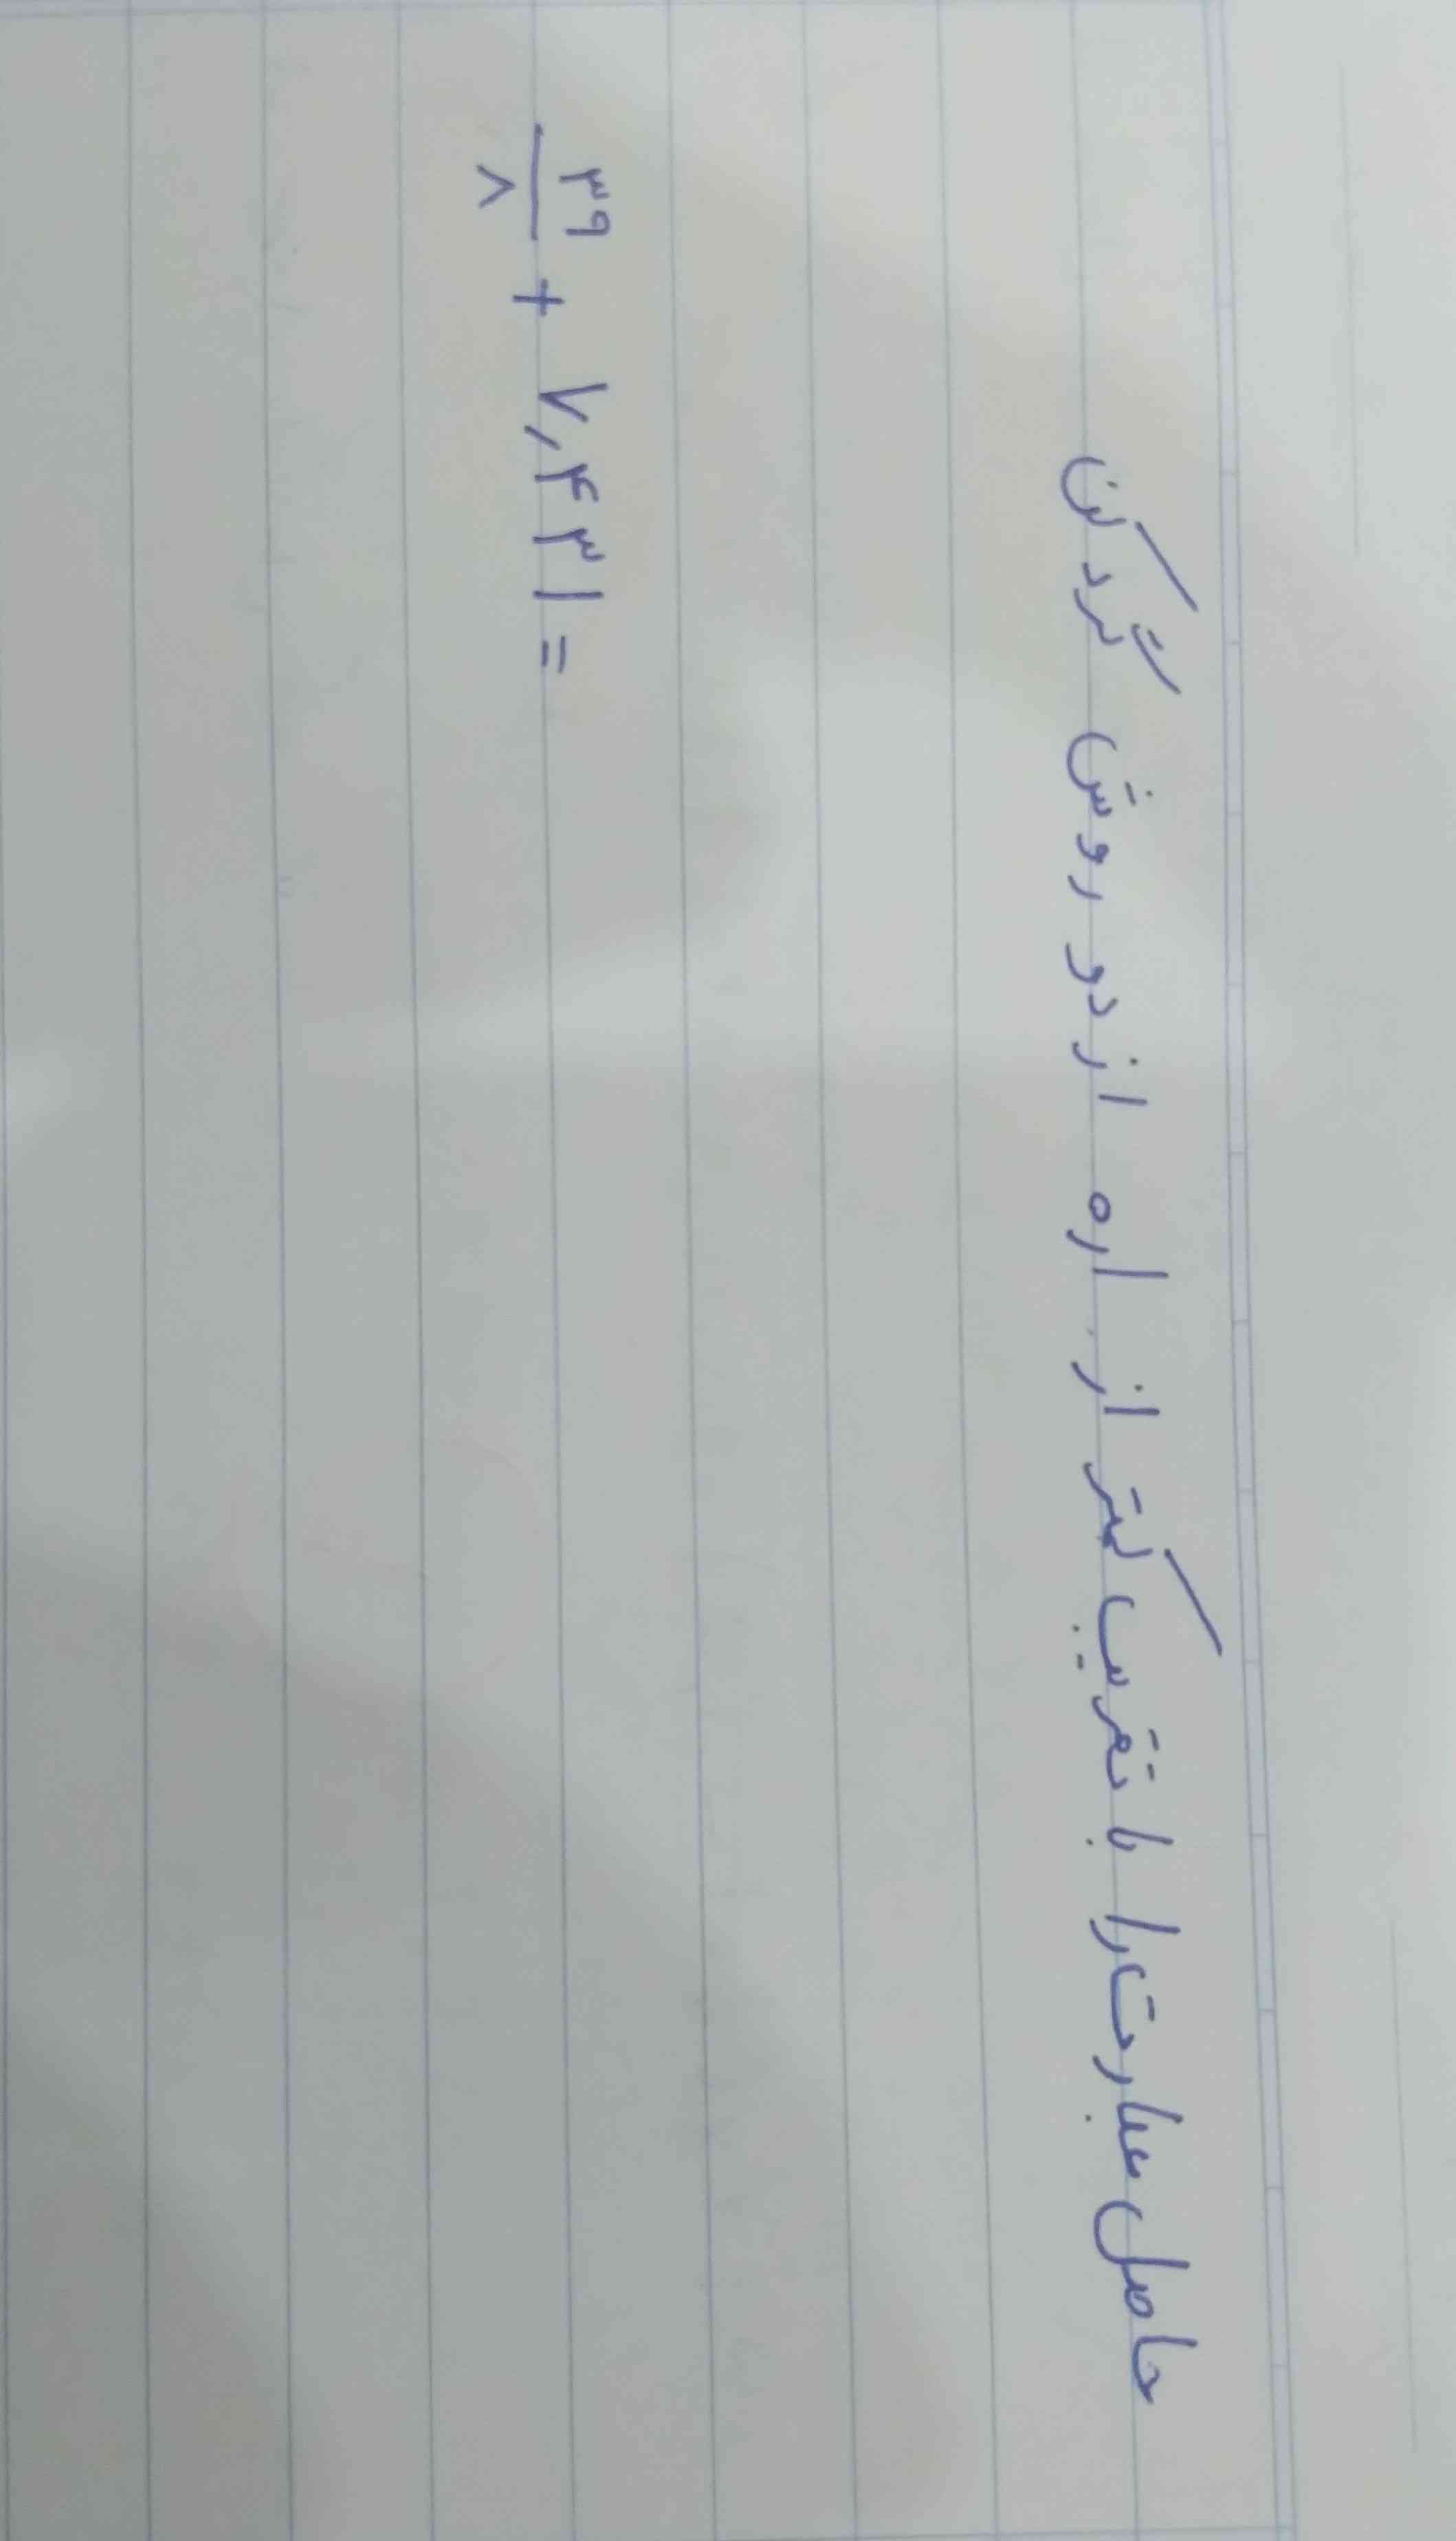 حاصل عبارت را با تقریب کمتر از ۰٫۱ از دو روش گرد کن
۳۹/۸ + ۷٫۴۳۱ =